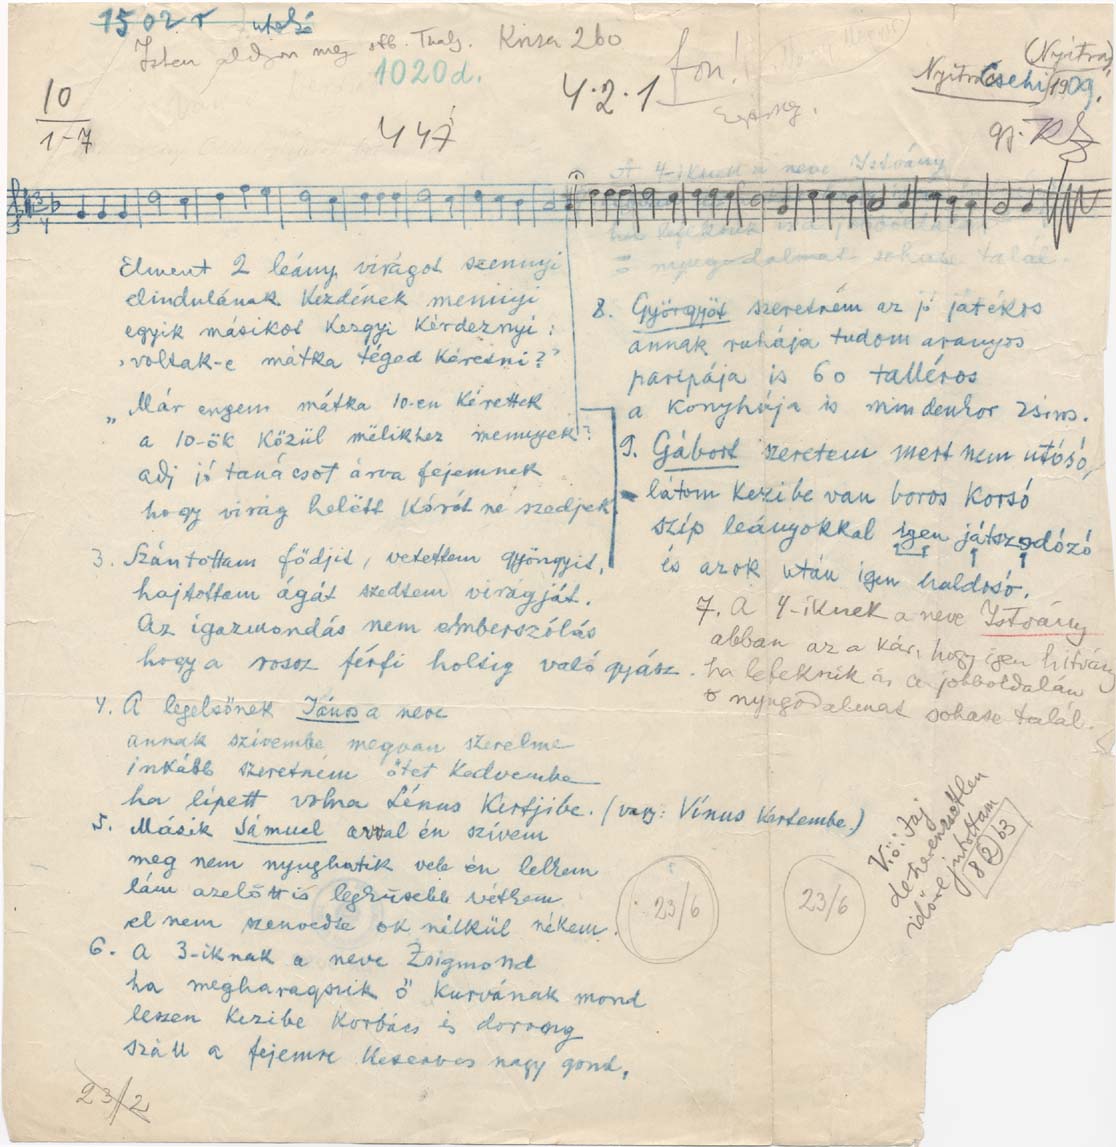 1502 r utolsó
Isten áldjon meg stb. Kriza 260
1020 d.
10
1–7
447
4·2·1
fon!
(Nyitra)
Nyitra Csehi 1909.
gy. KZ
A 4-iknek a neve Istvány
ha lefeknik is a jobboldalán
ő nyugodalmat sohase talál.
Elment 2 leány virágot szennyi
elindulának kezdének mennyi
egyik másikot kezgyi kérdeznyi:
„voltak-e mátka téged kéretni?”
„Már engem mátka 10-en kérettek
a 10-ök közül mëlikhez mennyek?
adj jó tanácsot árva fejemnek
hogy virág helëtt kórót ne szedjek
3. Szántottam fődjit, vetettem gyöngyit,
hajtottam ágát szedtem virágját.
Az igazmondás nem emberszólás
hogy a rossz férfi holtig való gyász.
4. A legelsőnek János a neve
annak szívembe megvan szerelme
inkább szeretném őtet kedvembe
ha lípett volna Lénus kertjibe. (vagy: Vínus kertembe.)
5. Másik Sámuel avval én szívem
meg nem nyughatik vele én lelkem
lám azelőtt is legküsebb vétkem
el nem szenvedte ok nélkül nékem.
6. A 3-iknak a neve Zsigmond
ha megharagszik ő kurvának mond
leszen kezibe korbács és dorong
száll a fejemre keserves nagy gond.
23/2
8. Györgyöt szeretném az jó játékos
annak ruhája tudom aranyos
paripája is 60 talléros
a konyhája is mindenkor zsíros.
9. Gábort szeretem mert nem utósó,
látom kezibe van boros korsó
szíp leányokkal igen játszodózó
és azok után igen haldosó.
7. A 4-iknek a neve Istvány
abban az a kár, hogy igen hitvány
ha lefeknik is a jobboldalán
ő nyugodalmat sohase talál.
23/6
23/6
V.ö: Faj
időre jutottam
8 2 63